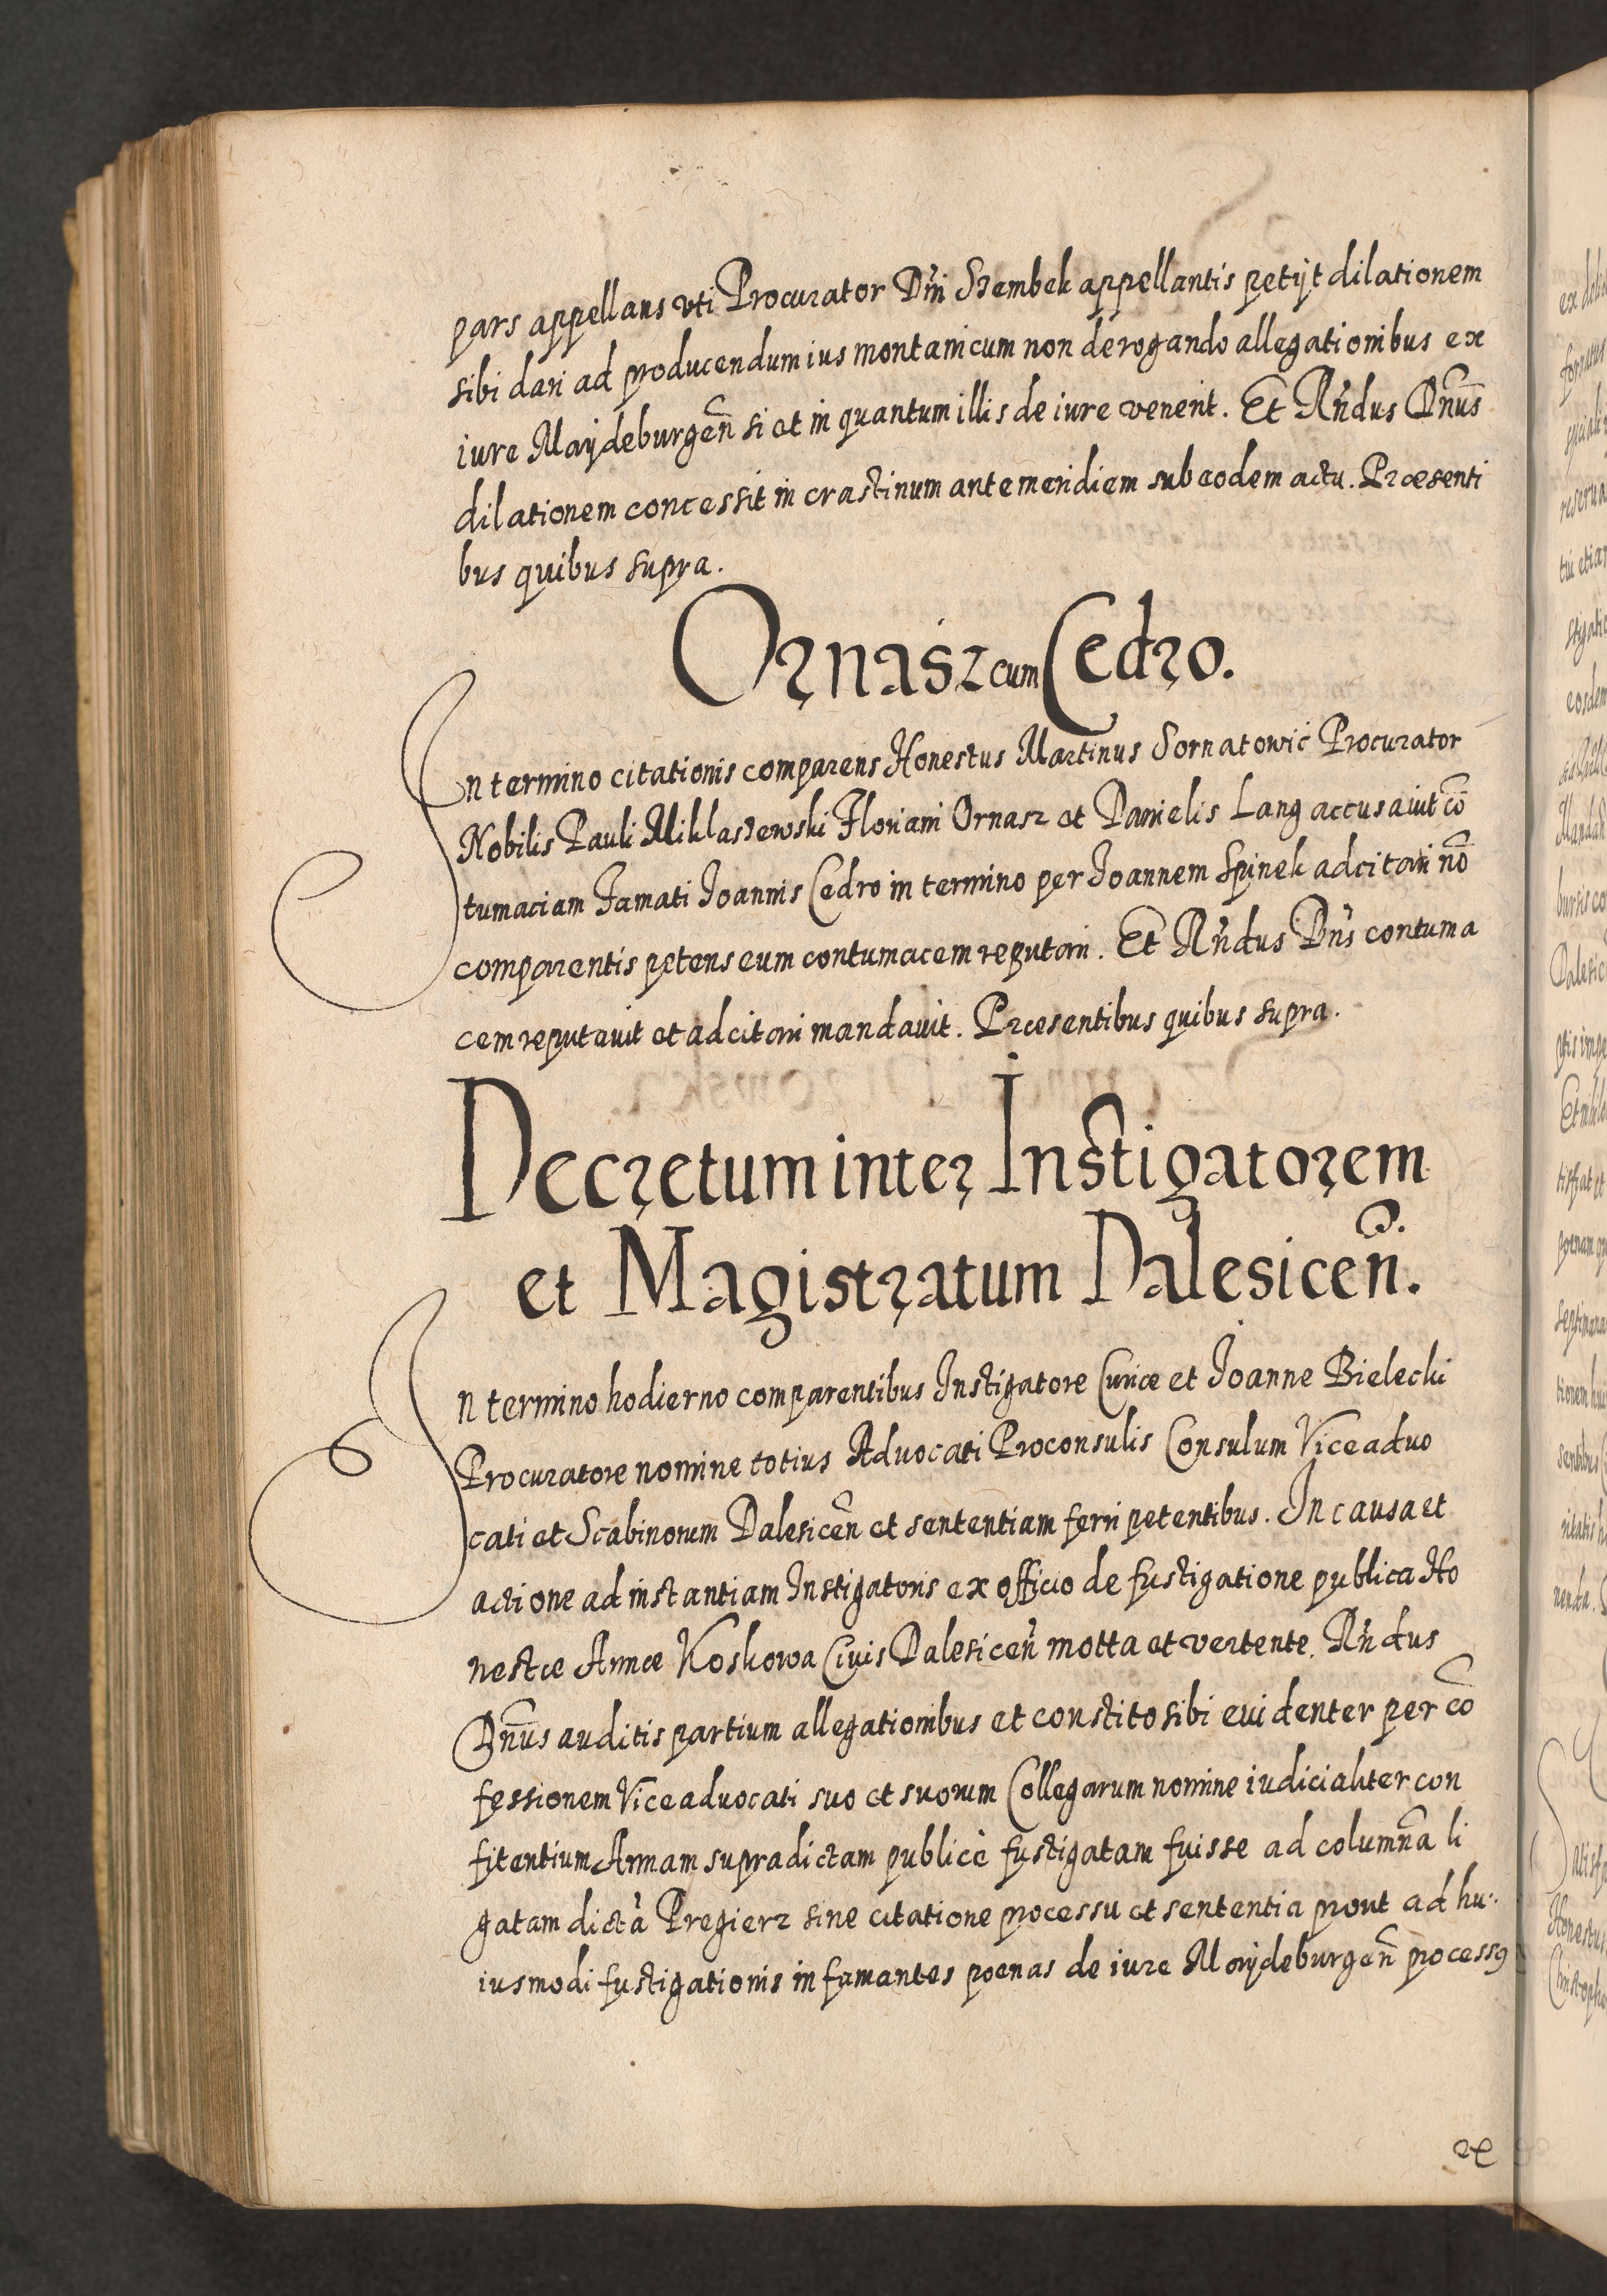 pars appellans vti Procurator Dni Szembek appellantis petijt dilationem
sibi dari ad producendum ius montanicum non derogando allegationibus ex
iure Maydeburgen̄ si et in quantum illis de iure venerit. Et Rn̄dus Dn̄us
dilationem concessit in crastinum ante meridiem sub eodem actu. Præsenti
bus quibus supra.
Ornasz cum Cedro.
In termino citationis comparens Honestus Martinus Sornatowic Procurator
Nobilis Pauli Miklaszewski Floriani Ornasz et Danielis Lang accusauit cō
tumaciam Famati Joannis Cedro in termino per Joannem Spinek adcitari nō
comparentis petens eum contumacem reputari. Et Rn̄dus Dn̄s contuma
cem reputauit et adcitari mandauit. Præsentibus quibus supra.
Decretum inter Instigatorem
et Magistratum Dalesicen̄.
In termino hodierno comparentibus Instigatore Curiæ et Joanne Bielecki
Procuratore nomine totius Advocati Proconsulis Consulum Viceaduo
cati et Scabinorum Dalesicen̄ et sententiam ferri petentibus. In causa et
actione ad instantiam Instigatoris ex officio de fustigatione publica Ho
nestæ Annæ Koskowa Ciuis Dalesicen̄ motta et vertente. Rn̄dus
Dn̄us auditis partium allegationibus et constito sibi euidenter per cō
fessionem Viceaduocati suo et suorum Collegarum nomine iudicialiter con
fitentium Annam supradictam publicè fustigatam fuisse ad columna̅ li
gatam dictā Pregierz sine citatione processu et sententia prout ad hu
iusmodi fustigationis infamantes poenas de iure Maydeburgen̄ processꝰ
re